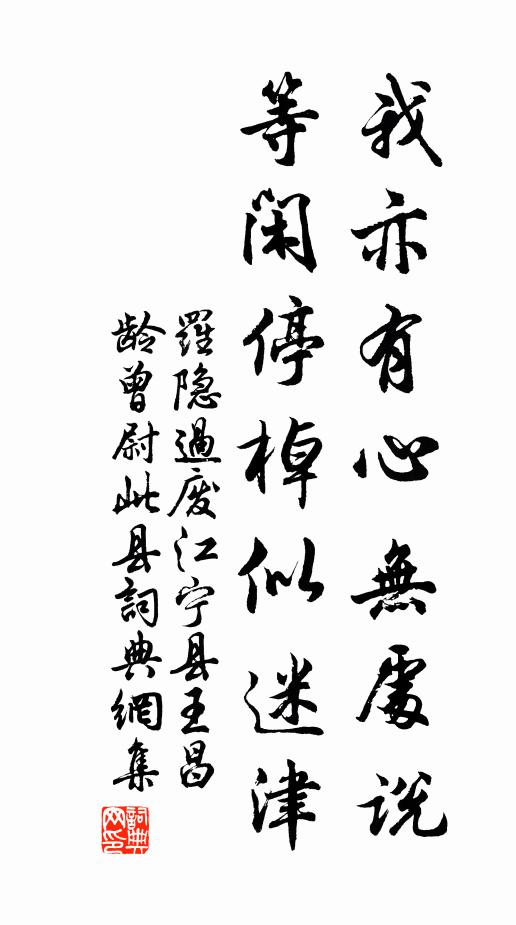 我亦有心無處說
等閑停棹似迷津
羅隐過废江宁县王昌
龄曾尉此县詞典網集
詞典
网印